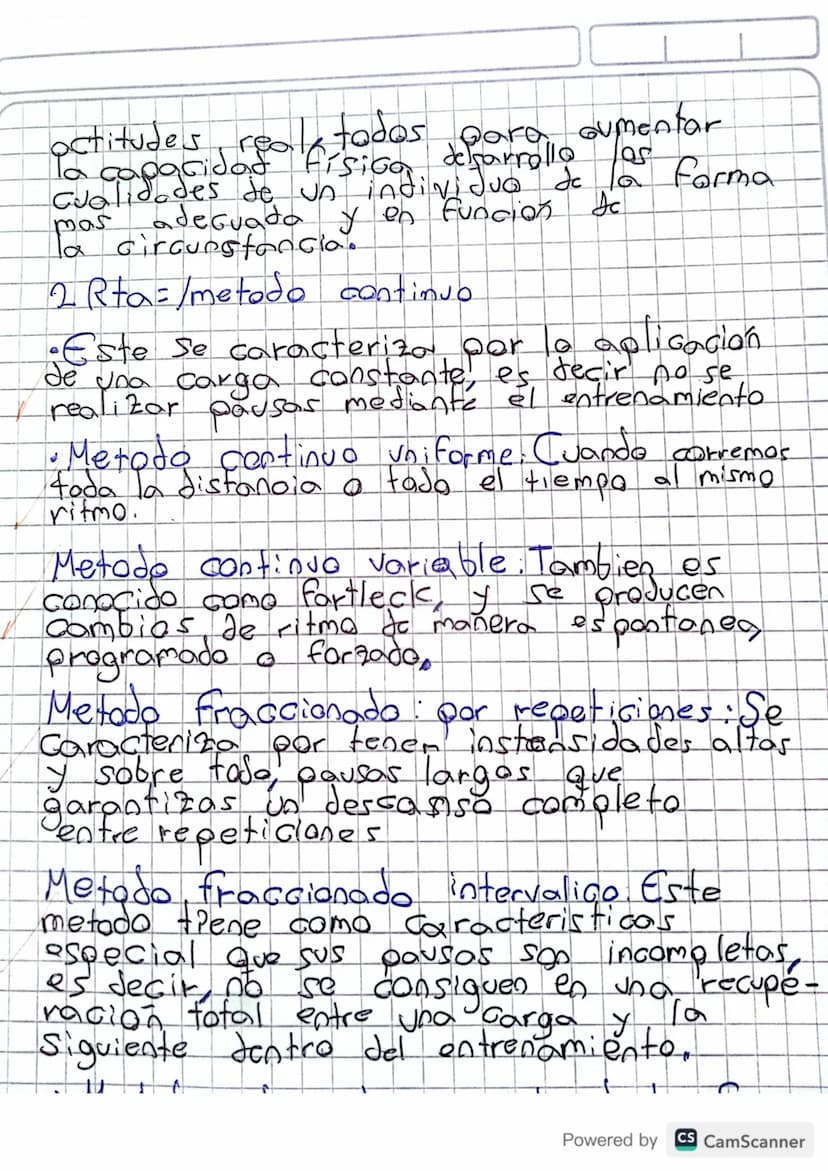 actitudes, realitodos para aumentar
la capacidad física desarrollo las
cualidades de un individuo de la forma
mas adecuada y en funcion de
la circunstancia.
2 Rta=/metodo continuo
•Este se caracteriza por la aplicacion
de una carga constante, es decir no se
realizar pausas mediante el entrenamiento
•Metodo continuo uniforme: Cuando corremos
toda la distancia o todo el tiempo al mismo
ritmo.
Metodo continuo variable: Tambien es
conocido como fartleck, y se producen
cambios de ritmo de manera espontanea,
programado o forzado.
Metodo fraccionado: por repeticiones: Se
caracteriza por tener instensidades altas
y sobre todo, pausas largos que
garantizas un descanso completo
entre repeticiones
Metodo fraccionado intervalico. Este
metodo tiene como caracteristicas
especial que sus pausas son incompletas,
es decir, no se consiguen en una recupe-
racion total entre una carga y la
siguiente dentro del entrenamiento.
Powered by CS CamScanner